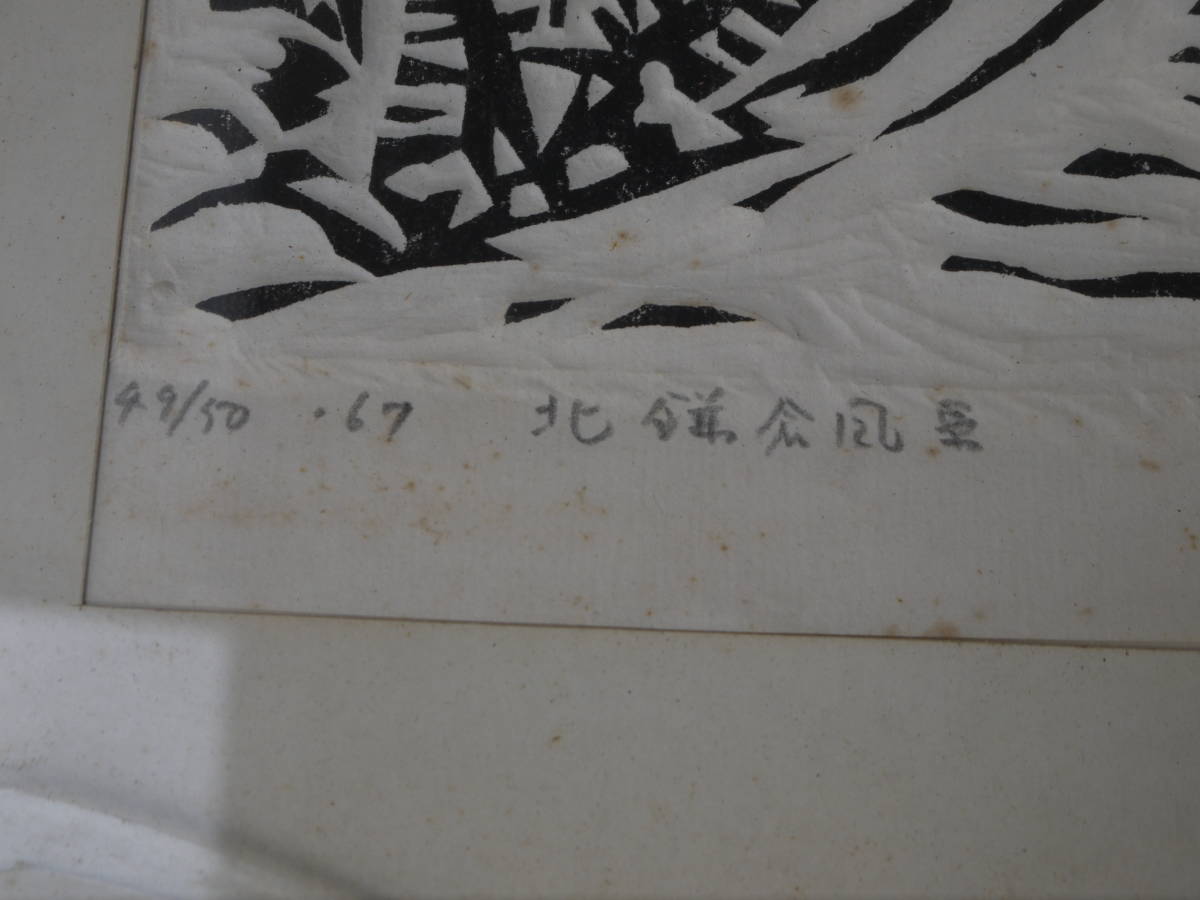 49/50 .67 北鎌倉風景